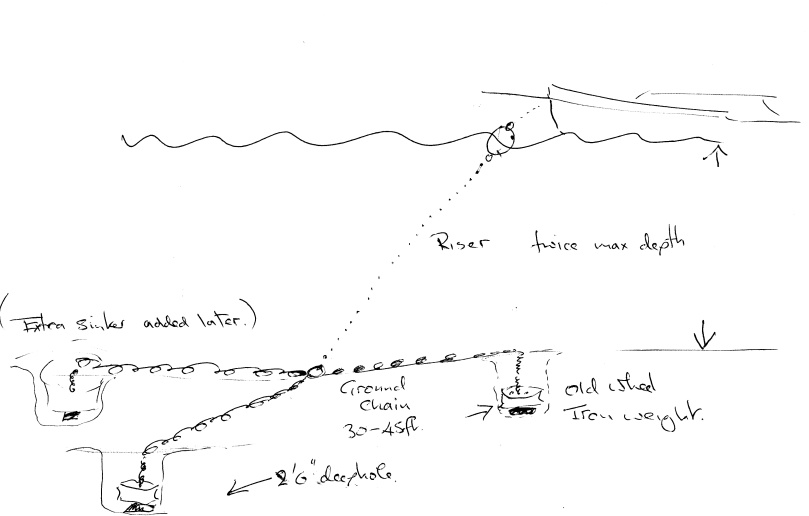 Riser twice max depth
(Extra sinker added later.)
Ground
Chain
30-45ft.
Old wheel
Iron weight.
2'6" deep hole.